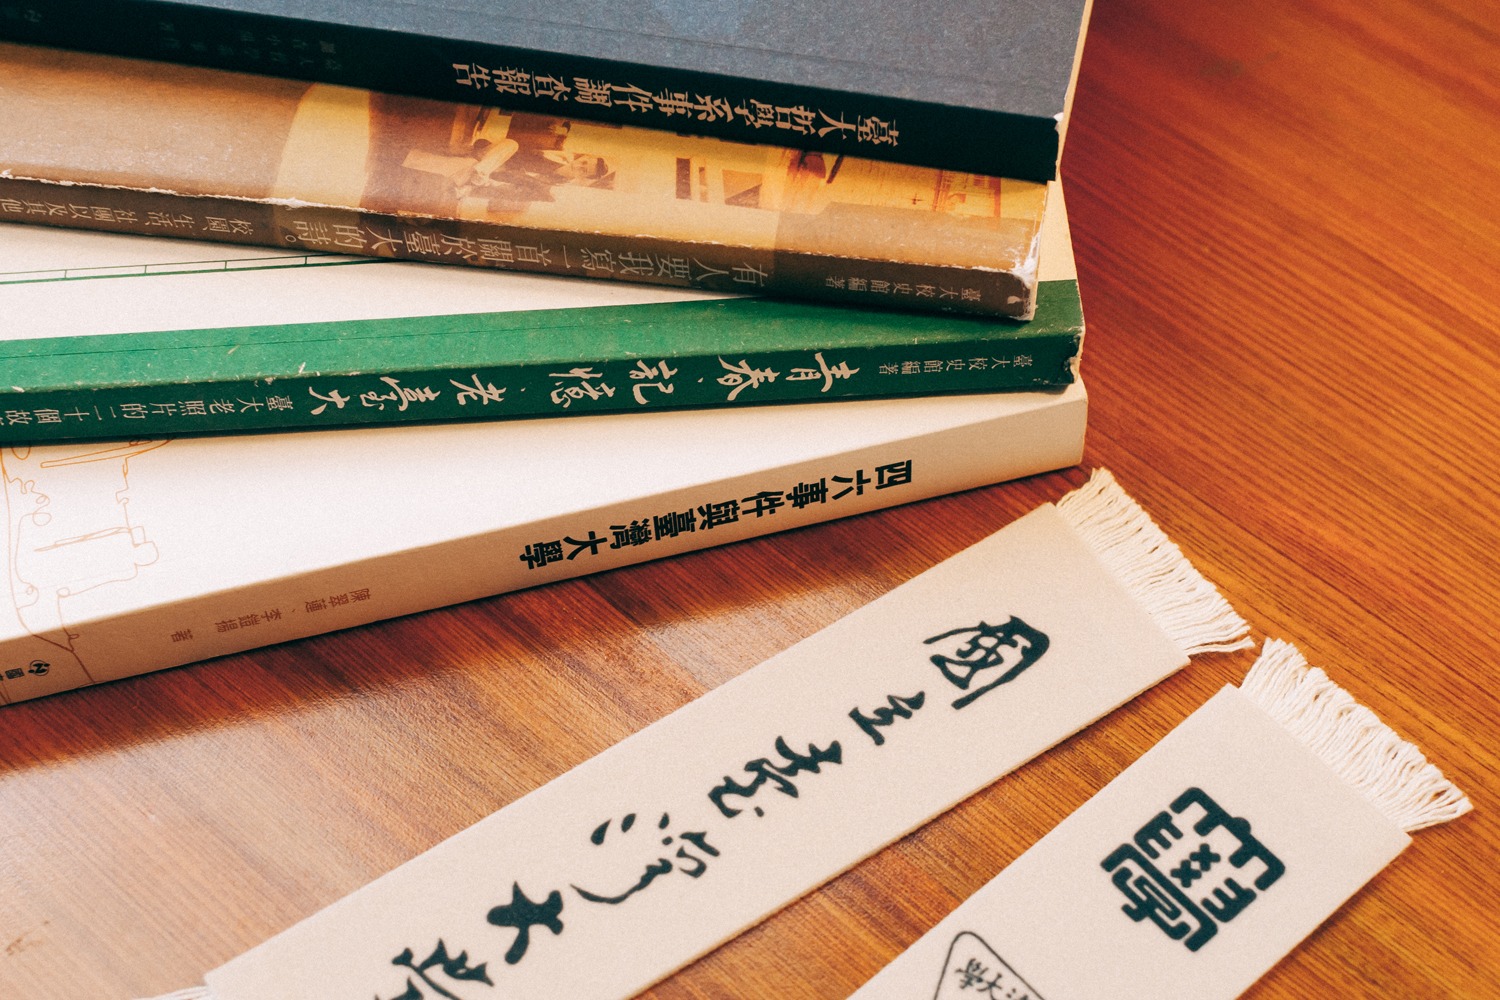 臺大哲學系事件調查報告
臺大校史館編著
有人要我寫一首關於臺大的詩。
校園、生活、社團以及其他
臺大校史館編著
青春.記憶.老臺大
臺大老照片的二十個故
四六事件與臺灣大學
陳翠蓮、李鎧揚 著
國立臺灣大學
學
大學